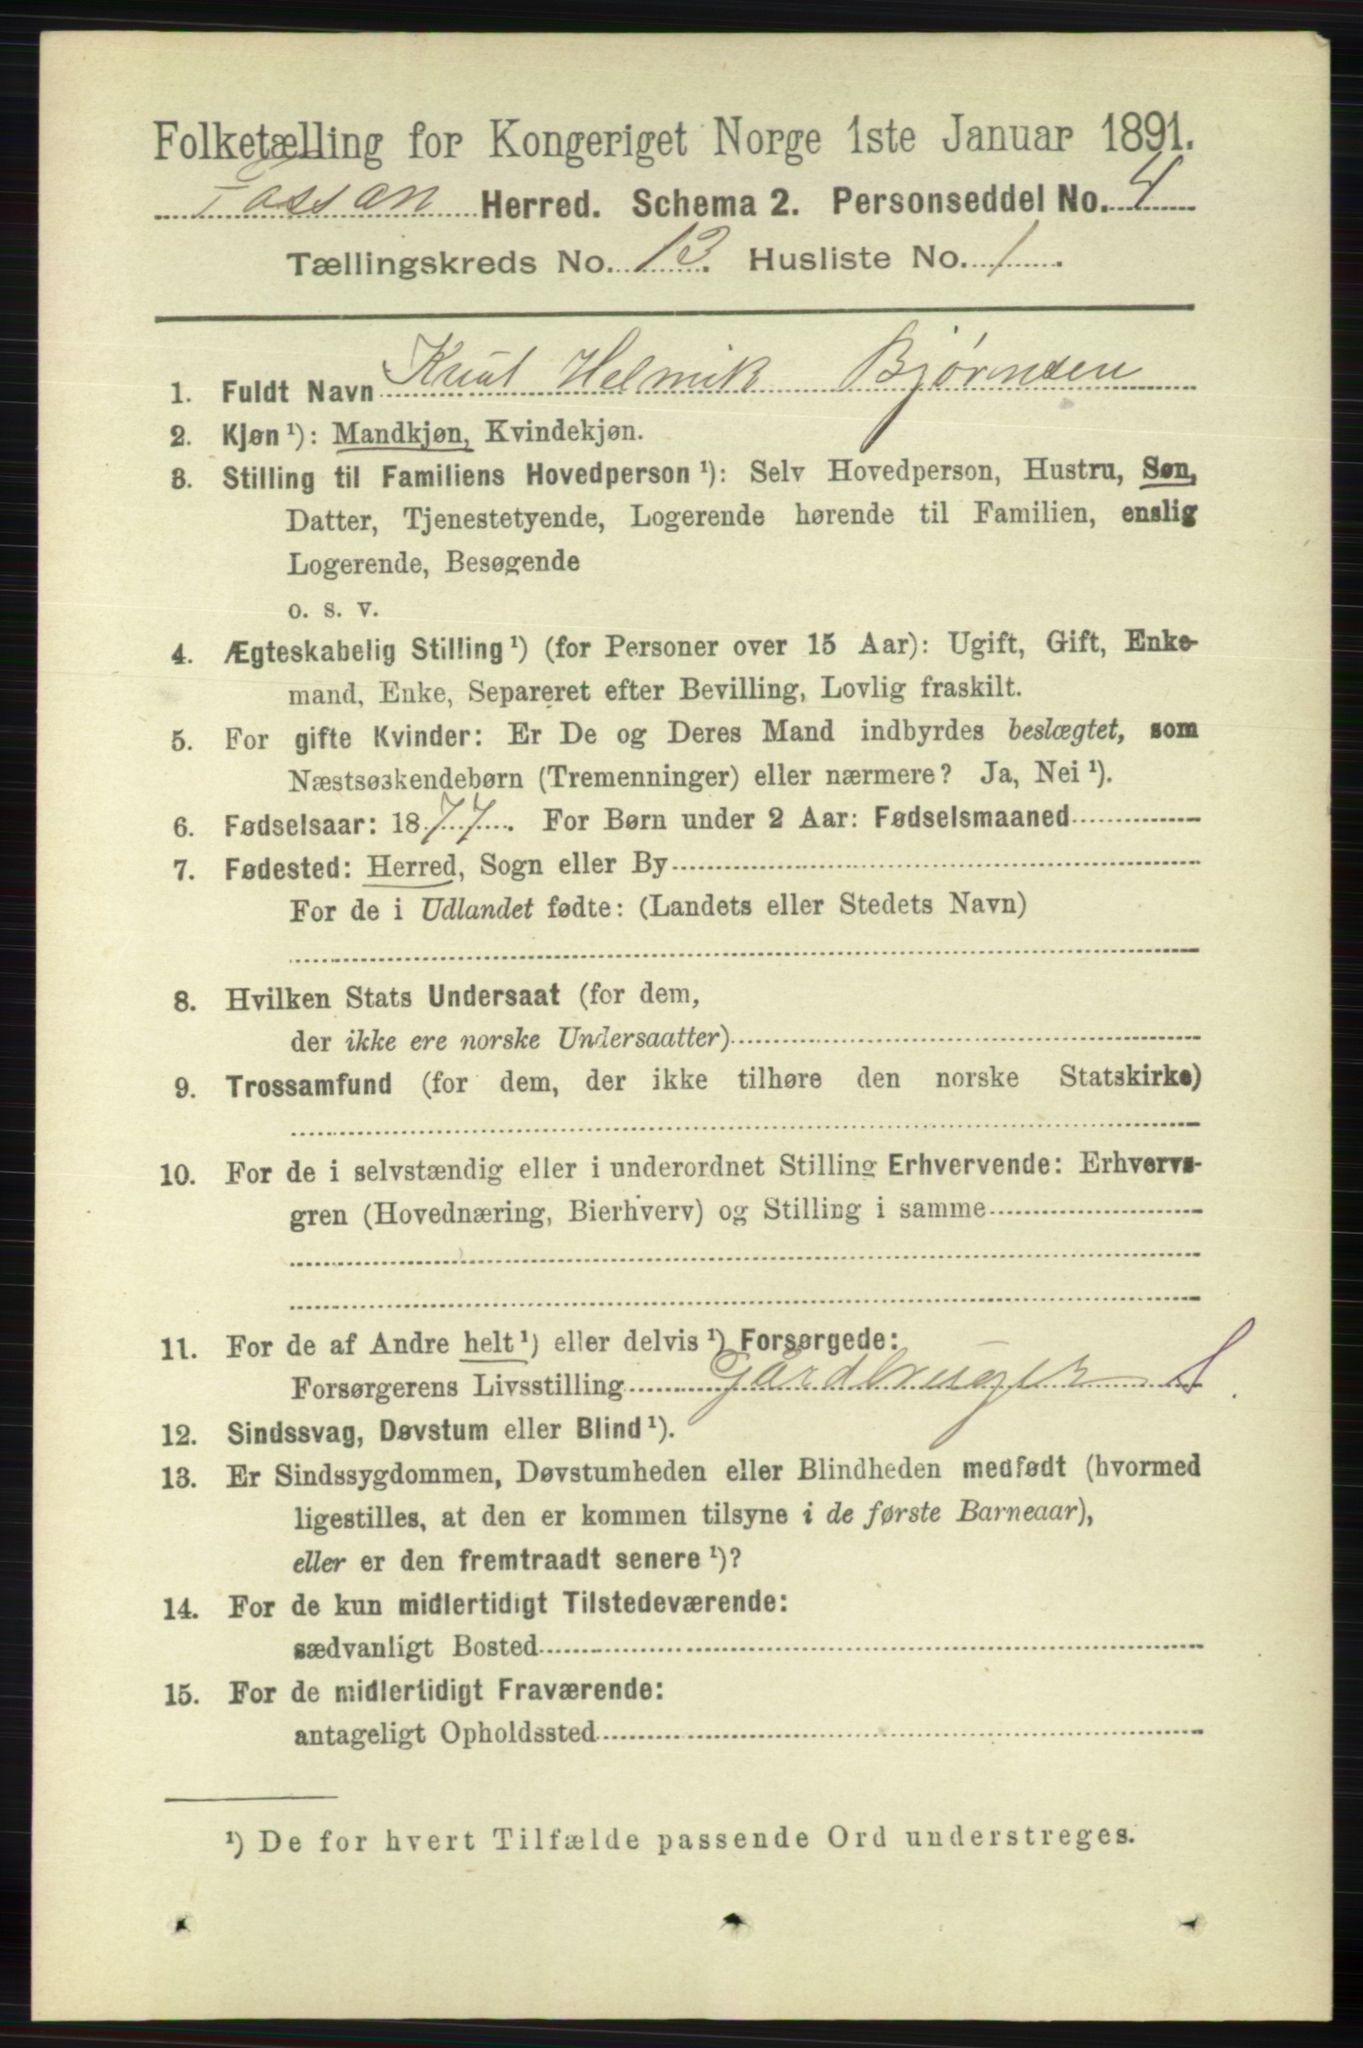 Folketælling for Kongeriget Norge 1ste Januar 1891.
Fossan Herred. Schema 2. Personseddel No. 4
Tællingskreds No. 13. Husliste No. 1.
1. Fuldt Navn Knut Helmik Bjørnsen
2. Kjøn ¹): Mandkjøn, Kvindekjøn.
3. Stilling til Familiens Hovedperson ¹): Selv Hovedperson, Hustru, Søn,
Datter, Tjenestetyende, Logerende hørende til Familien, enslig
Logerende, Besøgende
o. s. v.
4. Ægteskabelig Stilling ¹) (for Personer over 15 Aar): Ugift, Gift, Enke-
mand, Enke, Separeret efter Bevilling, Lovlig fraskilt.
5. For gifte Kvinder: Er De og Deres Mand indbyrdes beslægtet, som
Næstsøskendebørn (Tremenninger) eller nærmere? Ja, Nei ¹).
6. Fødselsaar: 1877. For Børn under 2 Aar: Fødselsmaaned
7. Fødested: Herred, Sogn eller By
For de i Udlandet fødte: (Landets eller Stedets Navn)
8. Hvilken Stats Undersaat (for dem,
der ikke ere norske Undersaatter)
9. Trossamfund (for dem, der ikke tilhøre den norske Statskirke)
10. For de i selvstændig eller i underordnet Stilling Erhvervende: Erhvervs-
gren (Hovednæring, Bierhverv) og Stilling i samme
11. For de af Andre helt ¹) eller delvis ¹) Forsørgede:
Forsørgerens Livsstilling Gårdbruger S.
12. Sindssvag, Døvstum eller Blind ¹).
13. Er Sindssygdommen, Døvstumheden eller Blindheden medfødt (hvormed
ligestilles, at den er kommen tilsyne i de første Barneaar),
eller er den fremtraadt senere ¹)?
14. For de kun midlertidigt Tilstedeværende:
sædvanligt Bosted
15. For de midlertidigt Fraværende:
antageligt Opholdssted
¹) De for hvert Tilfælde passende Ord understreges.